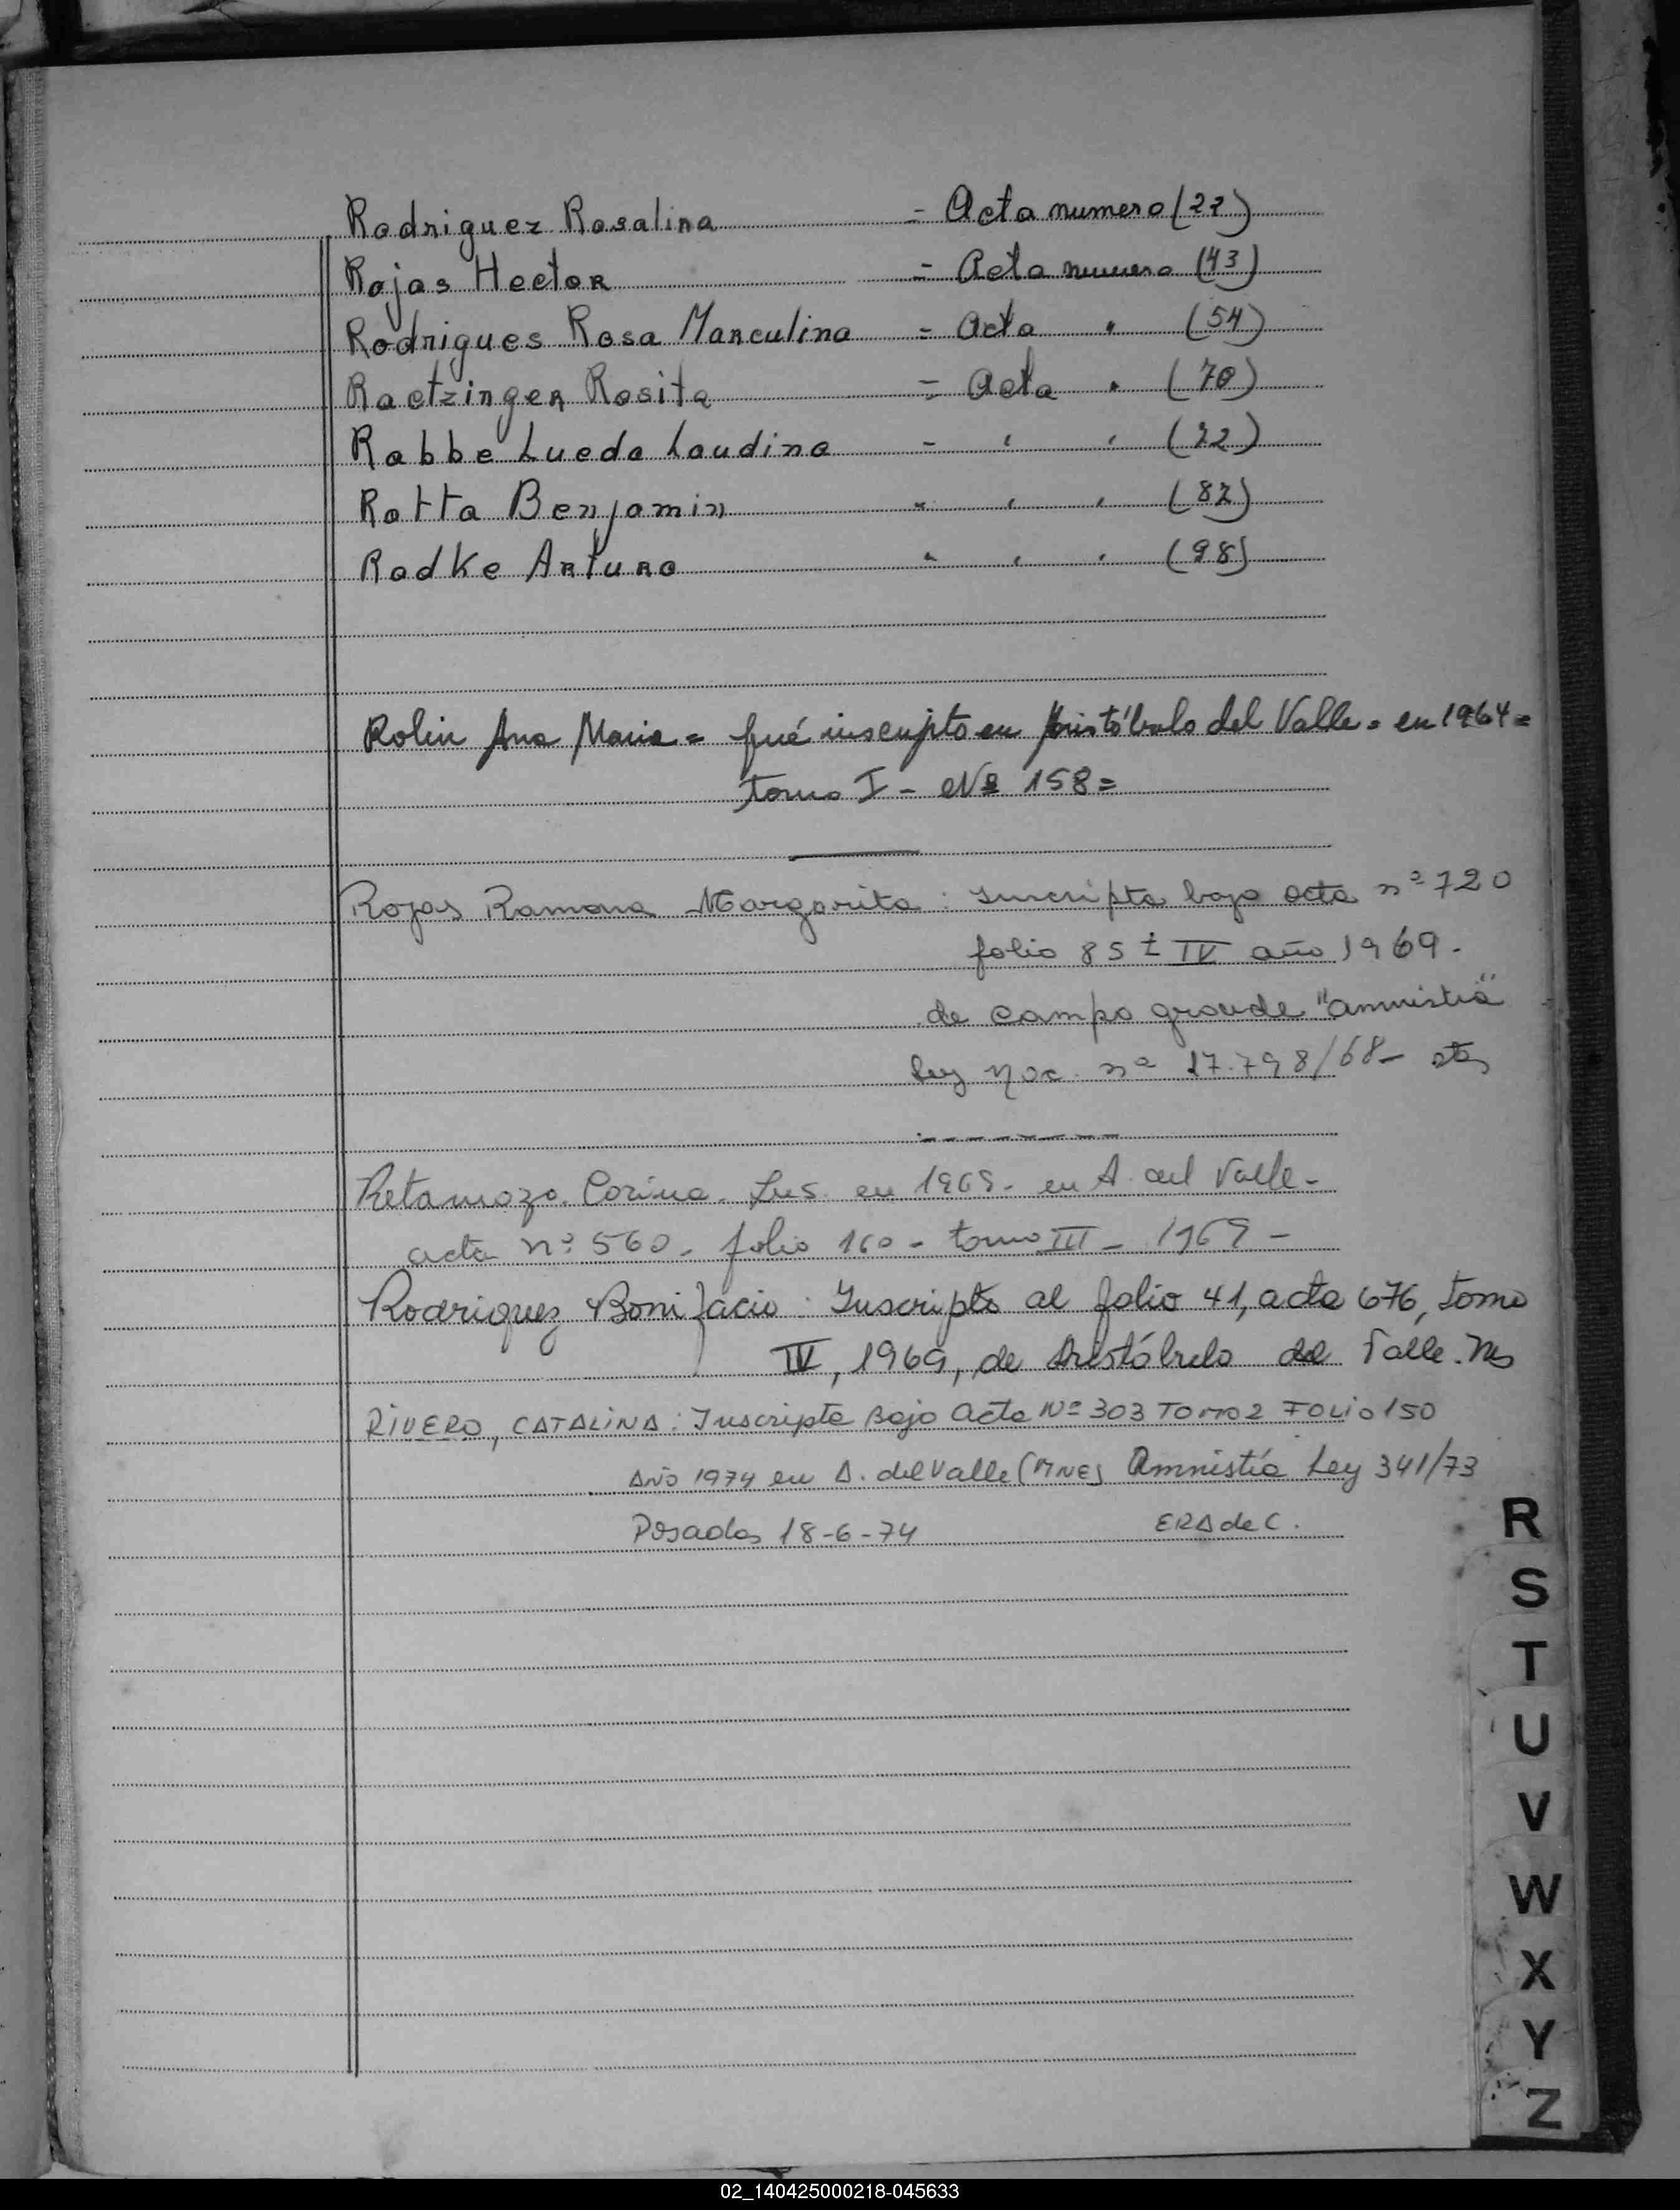 Rodriguez Rosalina = Acta numero (22)
Rojas Hector = Acta numero (43)
Rodrigues Rosa Marculina = Acta " (54)
Raetzinger Rosita = Acta " (70)
Rabbe Lueda Laudina = " " (72)
Rotta Benjamin " " " (82)
Radke Arturo " " " (98)
Rolin Ana Maria = fué inscripto en Aristóbulo del Valle = en 1964 =
tomo I - Nº 158 =
Rojas Ramona Margarita : Inscripta bajo acta nº 720
folio 85 t IV año 1969.
de Campo grande "amnistia"
ley nac. nº 17.798/68-
Retamozo Corina. Ins. en 1969. en A. del Valle -
acta nº 560. folio 160 - tomo III - 1969 -
Rodriguez Bonifacio : Inscripto al folio 41, acta 676, tomo
IV, 1969, de Aristóbulo del Valle. Ms
RIVERO, CATALINA : Inscripta Bajo Acta Nº 303 Tomo 2 Folio 150
Año 1974 en A. del Valle (MNES Amnistía Ley 341/73
Posadas 18-6-74 ERA de C.
R
S
T
U
V
W
X
Y
Z
02_140425000218-045633